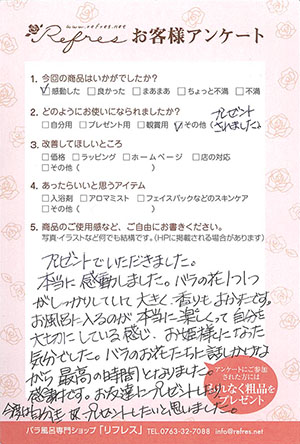 www.refres.net
Refres お客様アンケート
1. 今回の商品はいかがでしたか?
☑感動した □良かった □まあまあ □ちょっと不満 □不満
2. どのようにお使いになられましたか?
□自分用 □プレゼント用 □観賞用 ☑その他(プレゼントされました。)
3. 改善してほしいところ
□価格 □ラッピング □ホームページ □店の対応
□その他( )
4. あったらいいと思うアイテム
□入浴剤 □アロマミスト □フェイスパックなどのスキンケア
□その他( )
5. 商品のご使用感など、ご自由にお書きください。
写真・イラストなど何でも結構です。(HPに掲載される場合があります)
プレゼントでいただきました。
本当に感動しました。バラの花1つ1つ
がしっかりしていて大きく香りも
お風呂に入るのが本当に楽しくって自分を
大切にしている感じ、お姫様になった
気分でした。バラのお花たちに話しかけな
がら最高の時間となりました。
感謝です。お友達にプレゼントしたり
今度は自分を プレゼントしたいと思いました。
アンケートにご参加
された方には
もれなく粗品を
プレゼント
バラ風呂専門ショップ「リフレス」 TEL.0763-32-7088 info@refres.net